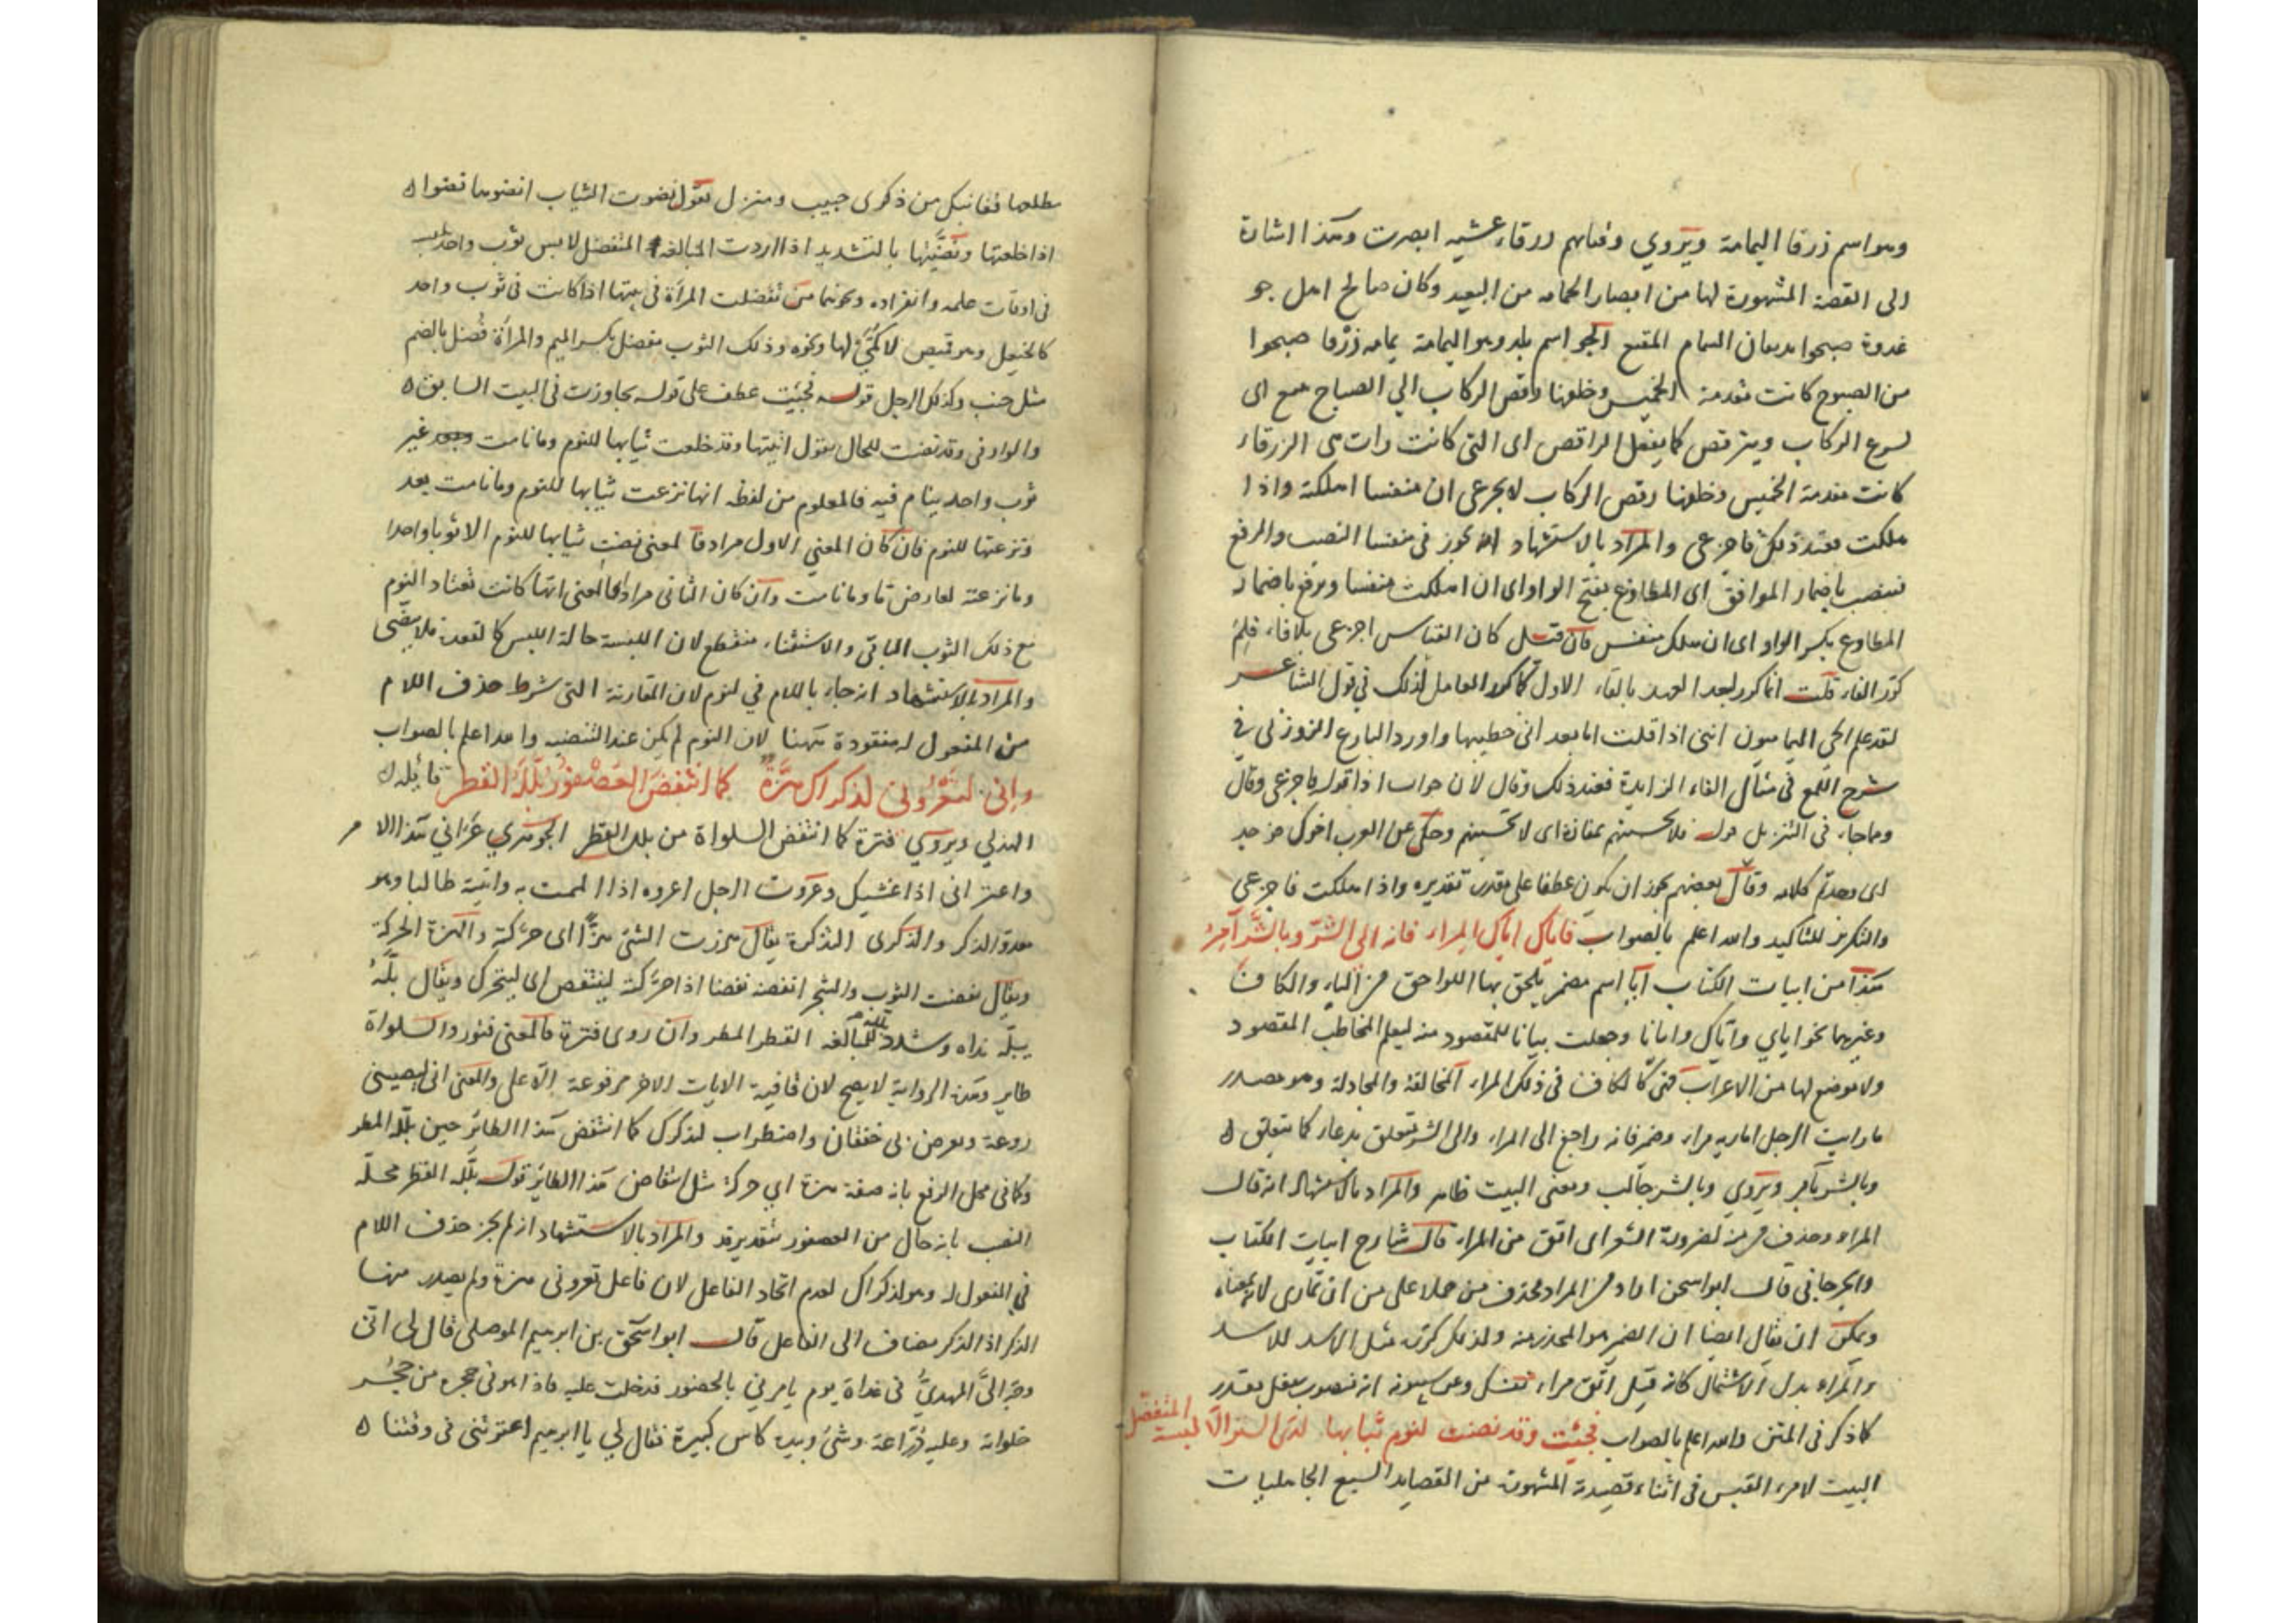 وهو اسم زرقا اليمامة ويروي وفتاهم زرقاء عشيه ابصرت وهذا اشارة
الى القصة المشهورة لها من ابصار الحمامه من البعيد وكان صالح اهل جو
غدوة صبحوا السمام المقنع الجو اسم بلد وهو اليمامة يمامه زرقا صبحوا
من الصبوح كانت مقدمة الخميس وخلفها رقص الركاب الي الصباح اى
لسرع الركاب ويترقص كما يفعل الراقص اى التى كانت رات هى الزرقاء
كانت مقدمة الخميس وخلفها رقص الركاب لا تجزعى ان منفسا اهلكته واذا
هلكت فعند ذلك فاجزعى والمراد بالاستشهاد انه يجوز فى منفسا النصب والرفع
بنصب باضمار الموافق اى المطاوع بفتح الواو اى ان اهلكت منفسا ويرفع باضمار
المطاوع بكسر الواو اى ان هلك منفس فان قيل كان القياس اجزعى بلا فاء فلم
كرر الفاء قلت انما كرر لبعد العهد بالفاء الاول كما كرر العامل لذلك في قول الشاعر
لقد علم الحي اليمانيون اننى اذا قلت اما بعد انى خطيبها واورد البارع الزوزنى في
شرح اللمع فى مثال الفاء الزايدة فعند ذلك وقال لان جواب اذا قوله فاجزعى وقال
ومما جاء فى التنزيل قوله فلا تحسبنهم بمفازة اى لا تحسبنهم وحكى عن العرب اخوك فوجد
وقال بعضهم يجوز ان يكون عطفا على مقدر تقديره واذا هلكت فاجزعى
والتكرير للتاكيد والله اعلم بالصواب فاياك اياك المراء فانه الى الشر وبالشر آمر
هذا من ابيات الكتاب ايا اسم مضمر يلحق بها اللواحق من الياء والكاف
وغيرهما نحو اياي واياك وايانا وجعلت بيانا للمقصود منه ليعلم المخاطب المقصود
ولا موضع لها من الاعراب كالكاف فى ذلك المراء المخالفة والمجادلة وهو مصدر
ماريت الرجل اماريه مراء وضمير فانه راجع الى المراء والى الشر يتعلق بدعاء كما يتعلق
وبالشر بآمر ويروي وبالشر جالب ومعنى البيت ظاهر والمراد بالاستشهاد انه قال
المراء وحذف من منه لضرورة الشعر اى اتق من المراء قال شارح ابيات الكتاب
والجرجانى قال ابو اسحق اراد من المراء فحذف من حملا على من ان تمارى لانه بمعناه
ويمكن ان يقال ايضا ان الضمير هو المحذر منه ولذلك كرر مثل الاسد الاسد
والمراء بدل الاشتمال كانه قيل اتق مراء نفسك وعن سيبويه انه منصوب بفعل مقدر
كما ذكر فى المتن والله اعلم بالصواب فجئت وقد نضت لنوم ثيابها لدى الستر الا لبسة المتفضل
البيت لامرء القيس فى اثناء قصيدته المشهورة من القصايد السبع الجاهليات
مطلعها قفا نبك من ذكرى حبيب ومنزل تقول نضوت الثياب انضوها نضوا
اذا خلعتها ونضيتها بالتشديد اذا اردت المبالغة المتفضل لابس ثوب واحد
فى اوقات علمه وانفراده ونحوهما من تفضلت المرأة فى بيتها اذا كانت فى ثوب واحد
كالخيعل وهو قميص لا كمي لها ونحوه وذلك الثوب مفضل بكسر الميم والمرأة فضل بالضم
مثل جنب وكذلك الرجل قوله فجئت عطف على قوله تجاوزت فى البيت السابق
والواو فى وقد نضت للحال يقول اتيتها وقد خلعت ثيابها للنوم وما نامت غير
ثوب واحد ينام فيه فالمعلوم من لفظه انها نزعت ثيابها للنوم وما نامت بعد
ونزعتها للنوم فان كان المعني الاول مرادفا لمعنى نضت ثيابها للنوم الا ثوبا واحدا
وما نزعته لعارض ما وما نامت وان كان الثانى مرادا فالمعنى انها كانت تعتاد النوم
مع ذلك الثوب الباقى والاستثناء منقطع لان اللبسة حالة اللبس كالقعدة
والمراد بالاستشهاد انه جاء باللام في لنوم لان المقارنة التى شرط حذف اللام
من المفعول له مفقودة ههنا لان النوم لم يكن عند النضو والله اعلم بالصواب
واني لتعروني لذكراك هزة كما انتفض العصفور بلله القطر قائله
الهذلي ويروي فترة كما انتفض السلواة من بلل القطر الجوهري عراني هذا الامر
واعتراني اذا غشيك وعروت الرجل اعروه اذا الممت به واتيته طالبا وهو
معروّ الذكر والذكرى التذكرة يقال هززت الشئ هزّا اى حركته والهزة الحركة
ويقال نفضت الثوب والشجر انفضه نفضا اذا حركته لينتفض اى ليتحرك ويقال بلّه
يبلّه نداه وشدد للمبالغه القطر المطر وان روى فترة فالمعنى فتور والسلواة
طاير وهذه الرواية لا يصح لان قافية الابيات الاخر مرفوعة والمعنى انى ليصيبنى
روعة ويعرض لى خفقان واضطراب لذكرك كما انتفض هذا الطائر حين بلله المطر
وكما فى محل الرفع بانه صفة هزة اي حركة مثل انتفاض هذا الطائر قوله بلله القطر محله
النصب بانه حال من العصفور بتقدير قد والمراد بالاستشهاد انه لم يجز حذف اللام
في المفعول له وهو لذكراك لعدم اتحاد الفاعل لان فاعل تعرونى هزة ولم يصدر منها
الذكر اذ الذكر مضاف الى الفاعل قال ابو اسحق بن ابرهيم الموصلى قال لى ابى
وجّه الىّ المهديّ فى غداة يوم يامرني بالحضور فدخلت عليه فاذا هو فى حجرة من حجر
خلواته وعليه درّاعة وشئ وبيده كاس كبيرة فقال لي يا ابرهيم فى وقتنا